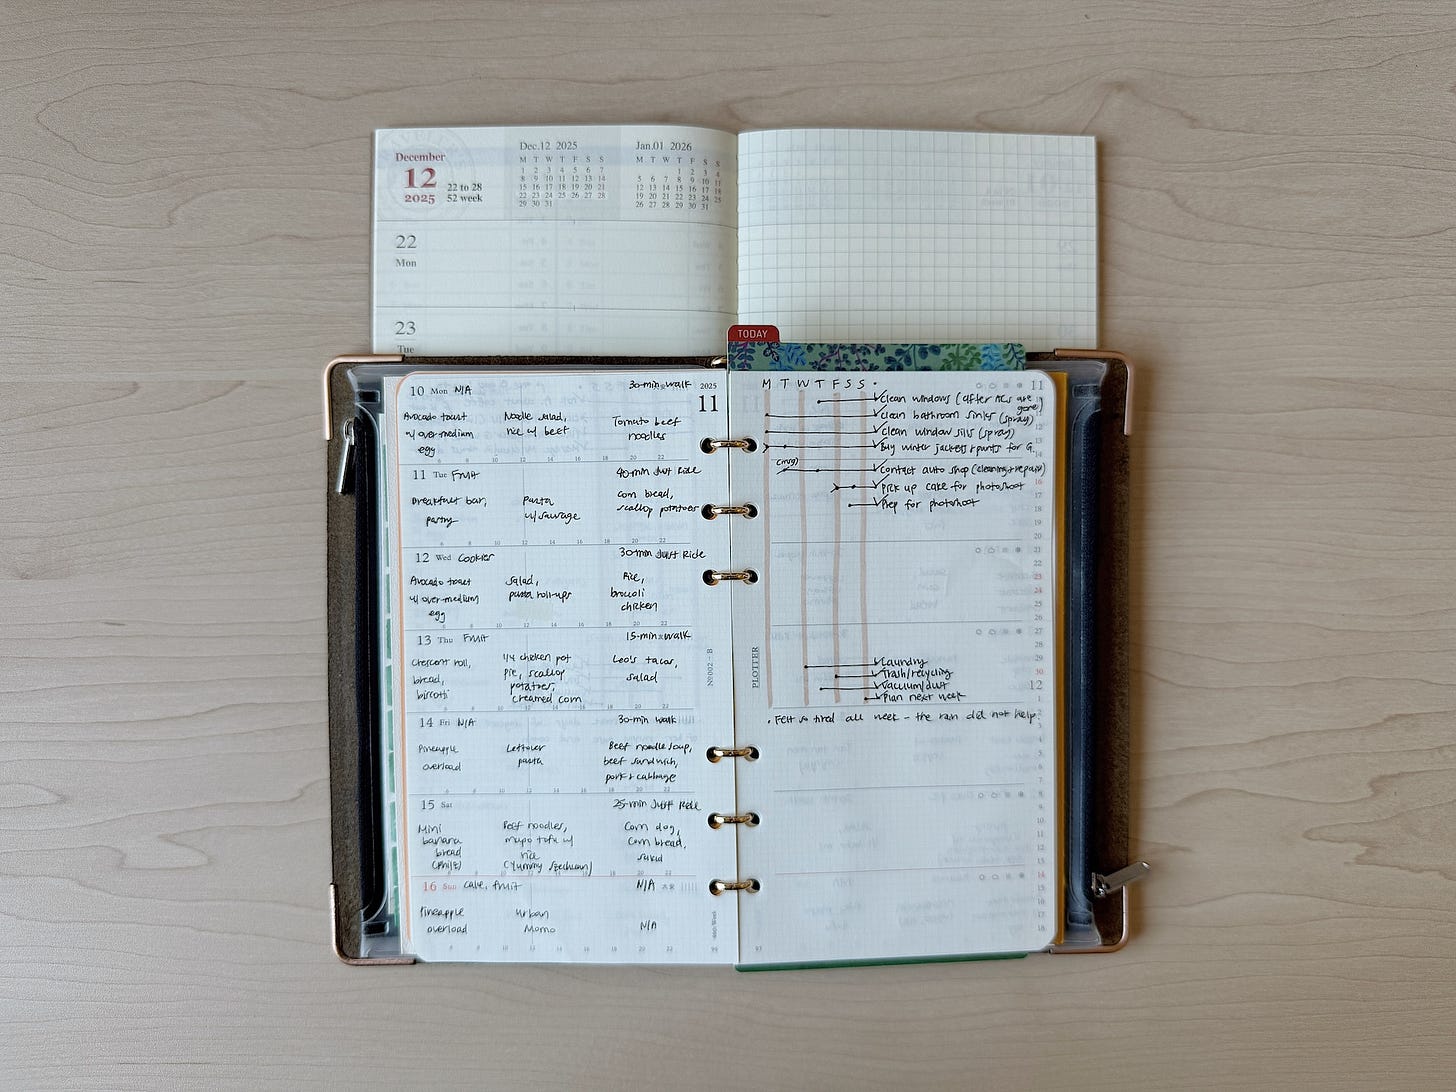 December
12
2025
22 to 28
52 week
Dec.12 2025
M T W T F S S
1 2 3 4 5 6 7
8 9 10 11 12 13 14
15 16 17 18 19 20 21
22 23 24 25 26 27 28
29 30 31
Jan.01 2026
M T W T F S S
1 2 3 4
5 6 7 8 9 10 11
12 13 14 15 16 17 18
19 20 21 22 23 24 25
26 27 28 29 30 31
22
Mon
23
Tue
TODAY
10 Mon N/A 30-min walk
2025
11
Avocado toast
w/ over-medium
egg
Noodle salad,
rice w/ beef
Tomato beef
noodles
11 Tue Fruit 40-min Just Ride
Breakfast bar,
pastry
pasta
w/ sausage
corn bread,
scallop potatoes
12 Wed Cookies 30-min Just Ride
Avocado toast
w/ over-medium
egg
Salad,
pasta roll-ups
Rice,
broccoli
chicken
13 Thu Fruit 15-min walk
Crescent roll,
bread,
biscotti
1/4 chicken pot
pie, scallop
potatoes,
creamed corn
Leo's tacos,
salad
14 Fri N/A 30-min walk
Pineapple
overload
Leftover
pasta
Beef noodle soup,
beef sandwich,
pork + cabbage
15 Sat 25-min Just Ride
Mini
banana
bread
(Philz)
Beef noodles,
mapo tofu w/
rice
(Yummy Szechuan)
Corn dog,
Corn bread,
salad
16 Sun cake, fruit N/A
Pineapple
overload
Urban
Momo
N/A
M T W T F S S
Clean windows (after ACs are
gone)
Clean bathroom sinks (spray)
Clean window sills (spray)
Buy winter jackets + pants for G.
Contact auto shop (cleaning + repair)
Pick up cake for photoshoot
Prep for photoshoot
PLOTTER
Laundry
Trash/recycling
Vacuum/dust
Plan next week
• Felt so tired all week - the rain did not help.
11
12